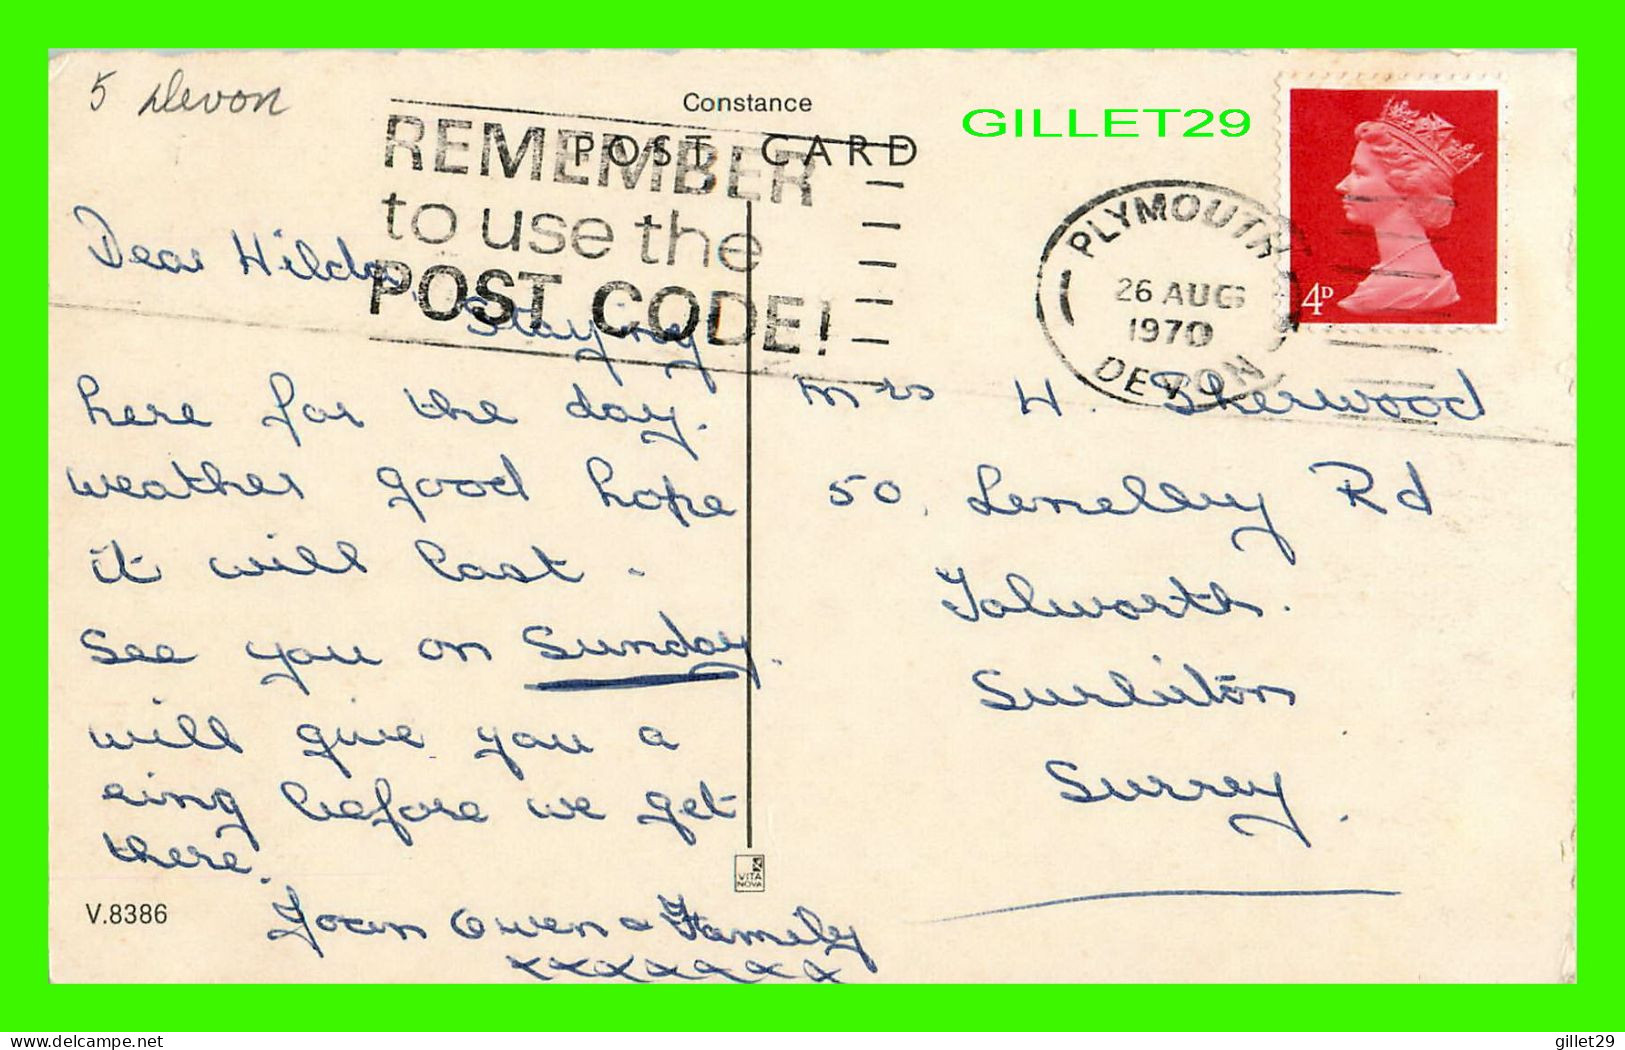 5 Devon
Constance
POST CARD
GILLET29
REMEMBER
to use the
POST CODE!
PLYMOUTH
26 AUG
1970
DEVON
4D
Dear Hilda,
Staying
here for the day.
weather good hope
it will last.
See you on Sunday.
will give you a
ring before we get
there.
Joan Owen & Family
xxxxxxxx
Mrs H. Sherwood
50, Rd
Tolworth.
Surbiton
Surrey.
VITA
NOVA
V.8386
delcampe.net
gillet29